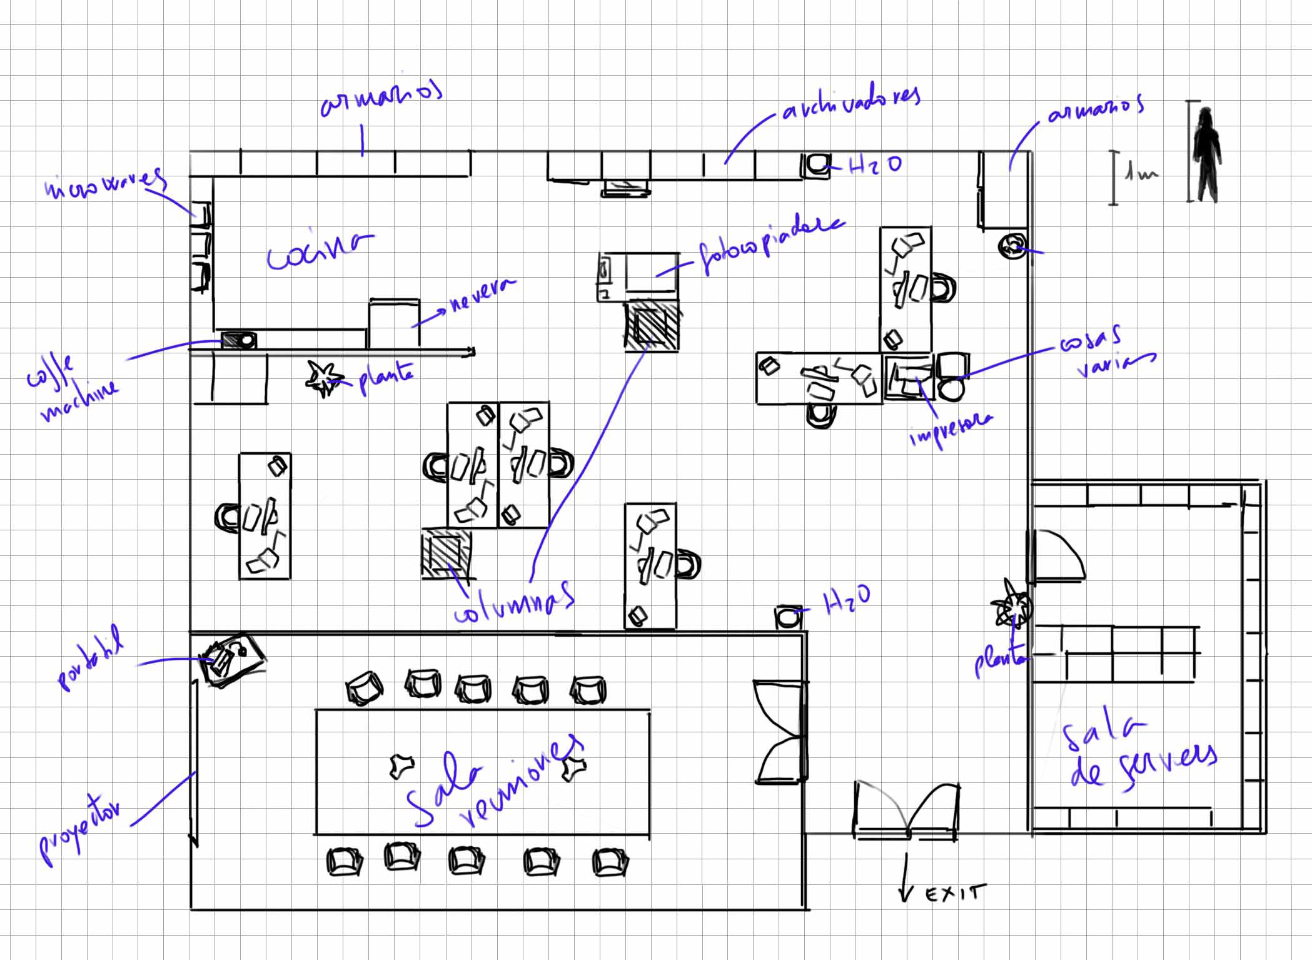 armarios
archivadores
armarios
1m
H2O
microwaves
cocina
fotocopiadora
nevera
coffe
machine
planta
cosas
varias
impresora
columnas
H2O
portatil
planta
sala
de servers
Sala
reuniones
proyector
EXIT